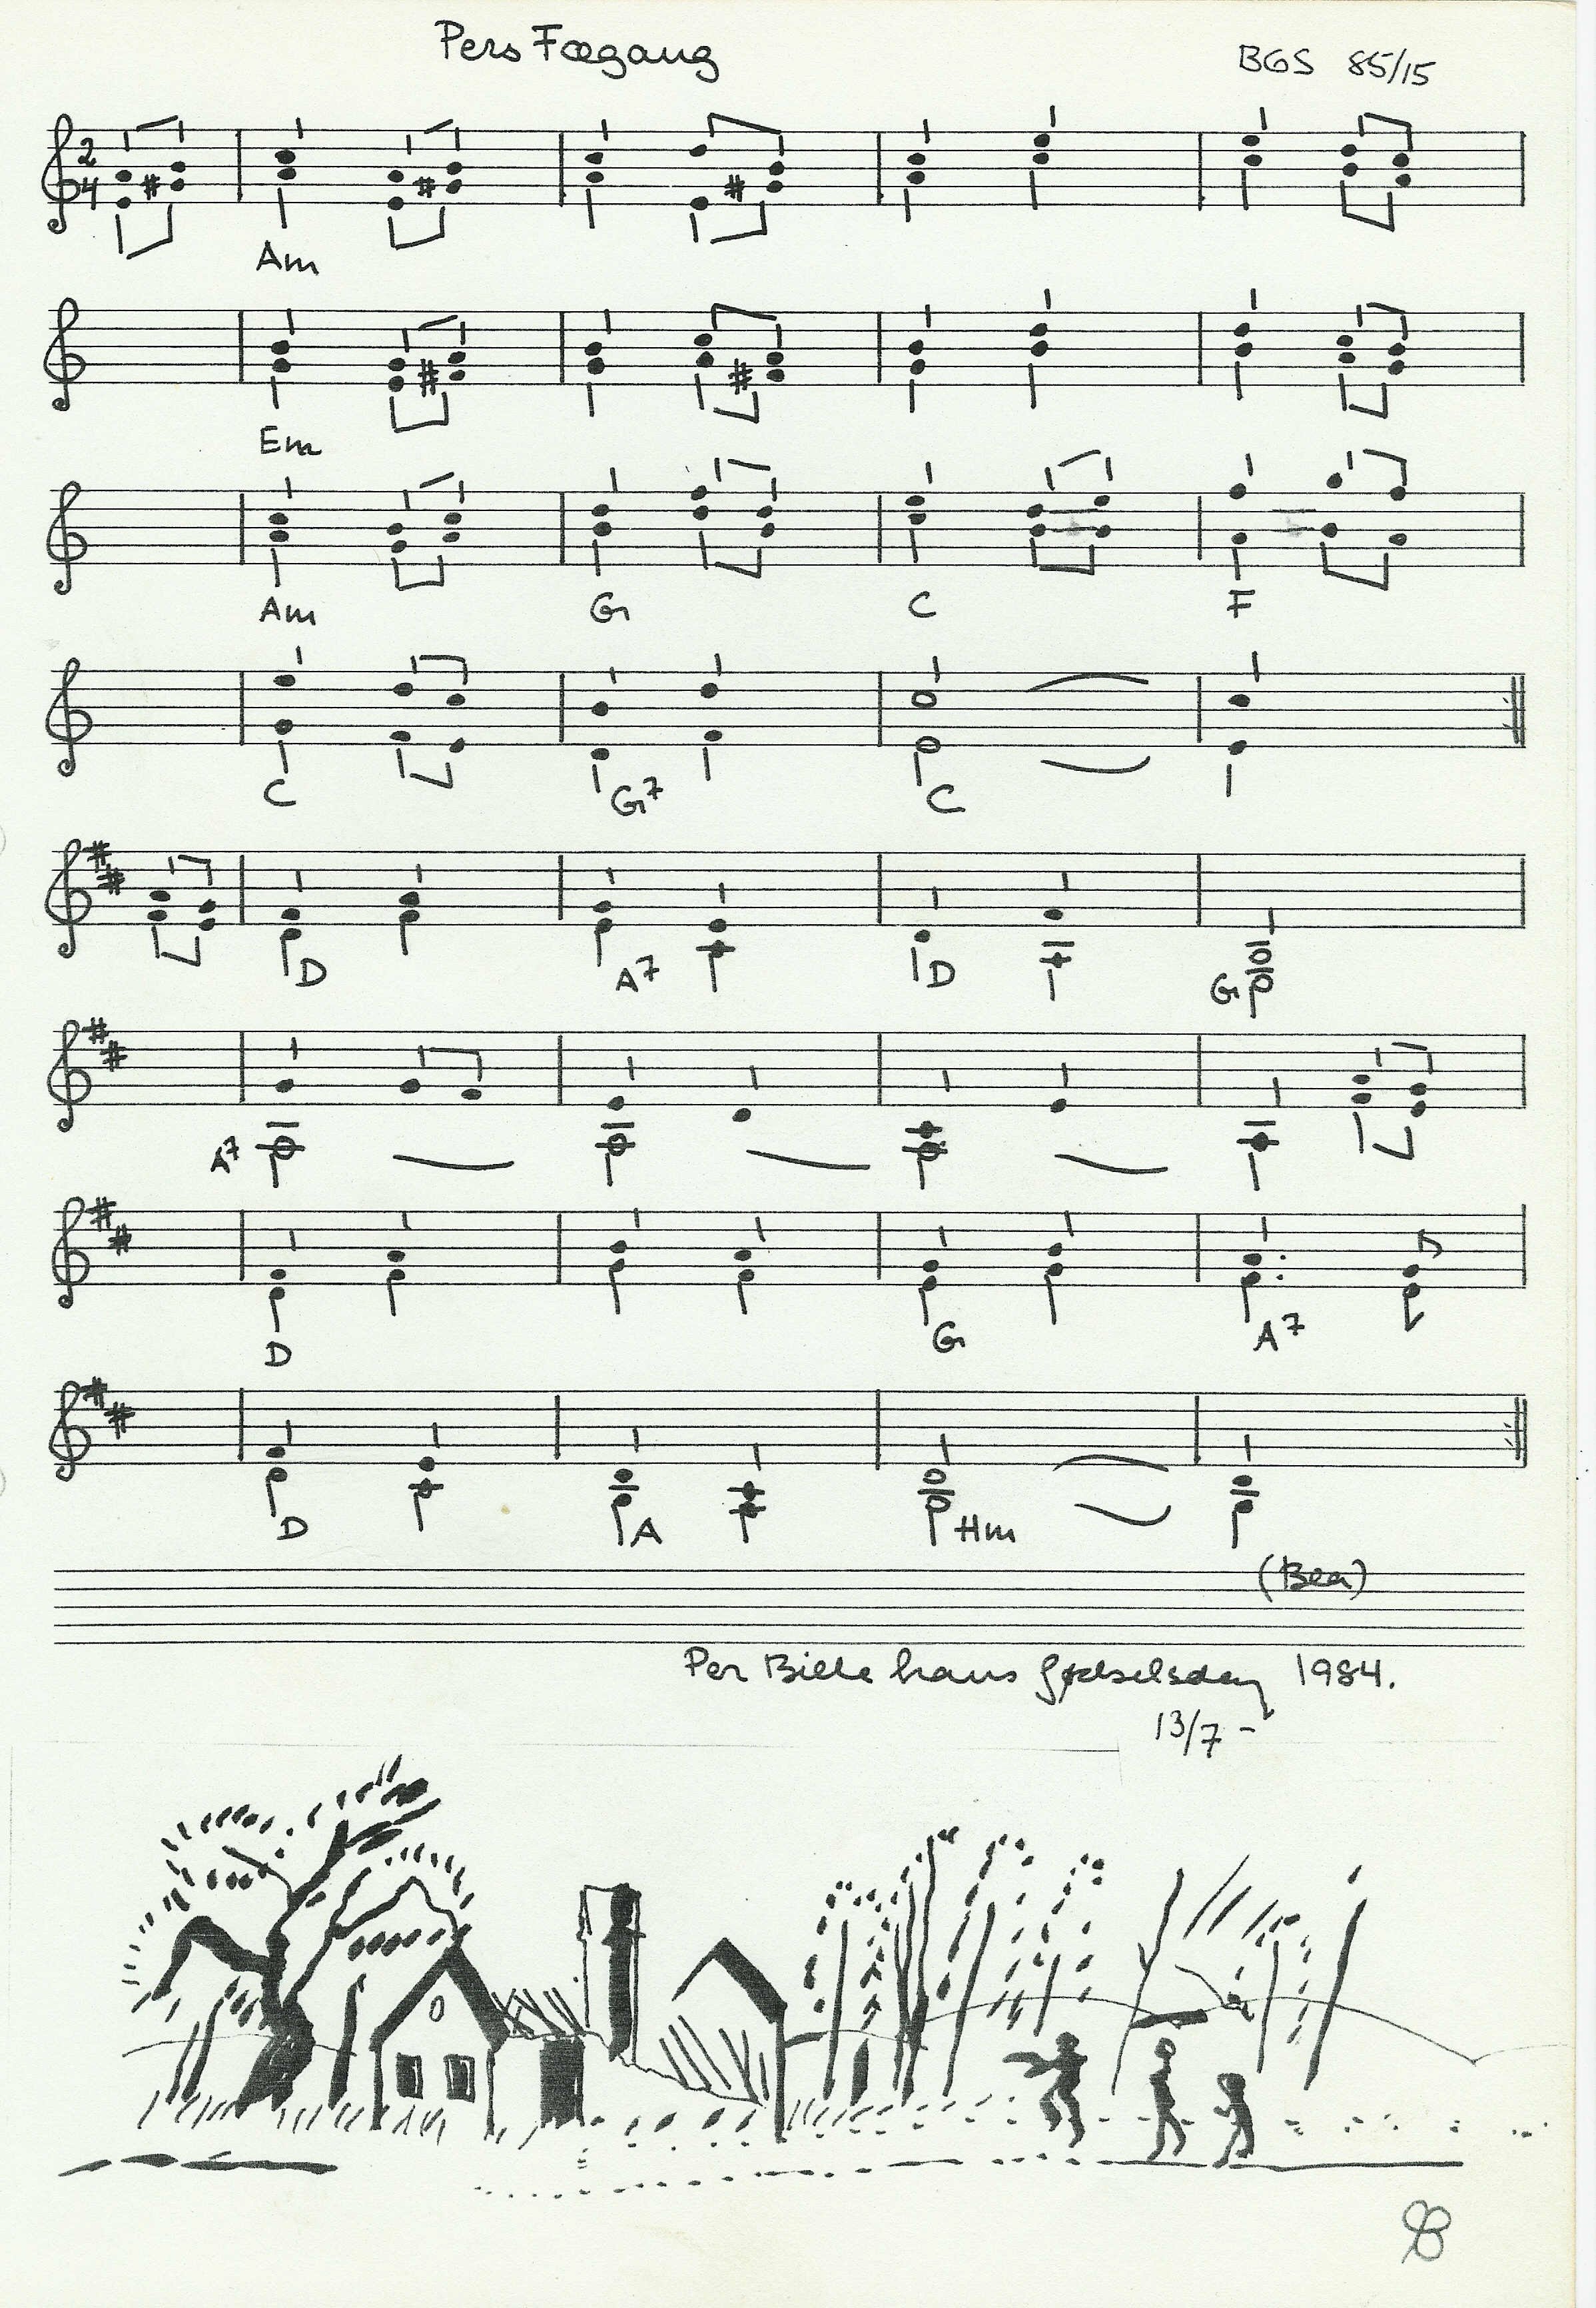 Pers Fægang
BGS 85/15
2
4
Am
Em
Am G C F
C G7 C
D A7 D G
A7
D G A7
D A Hm
(Bea)
Per Bille hans fødselsdag 1984.
13/7 -